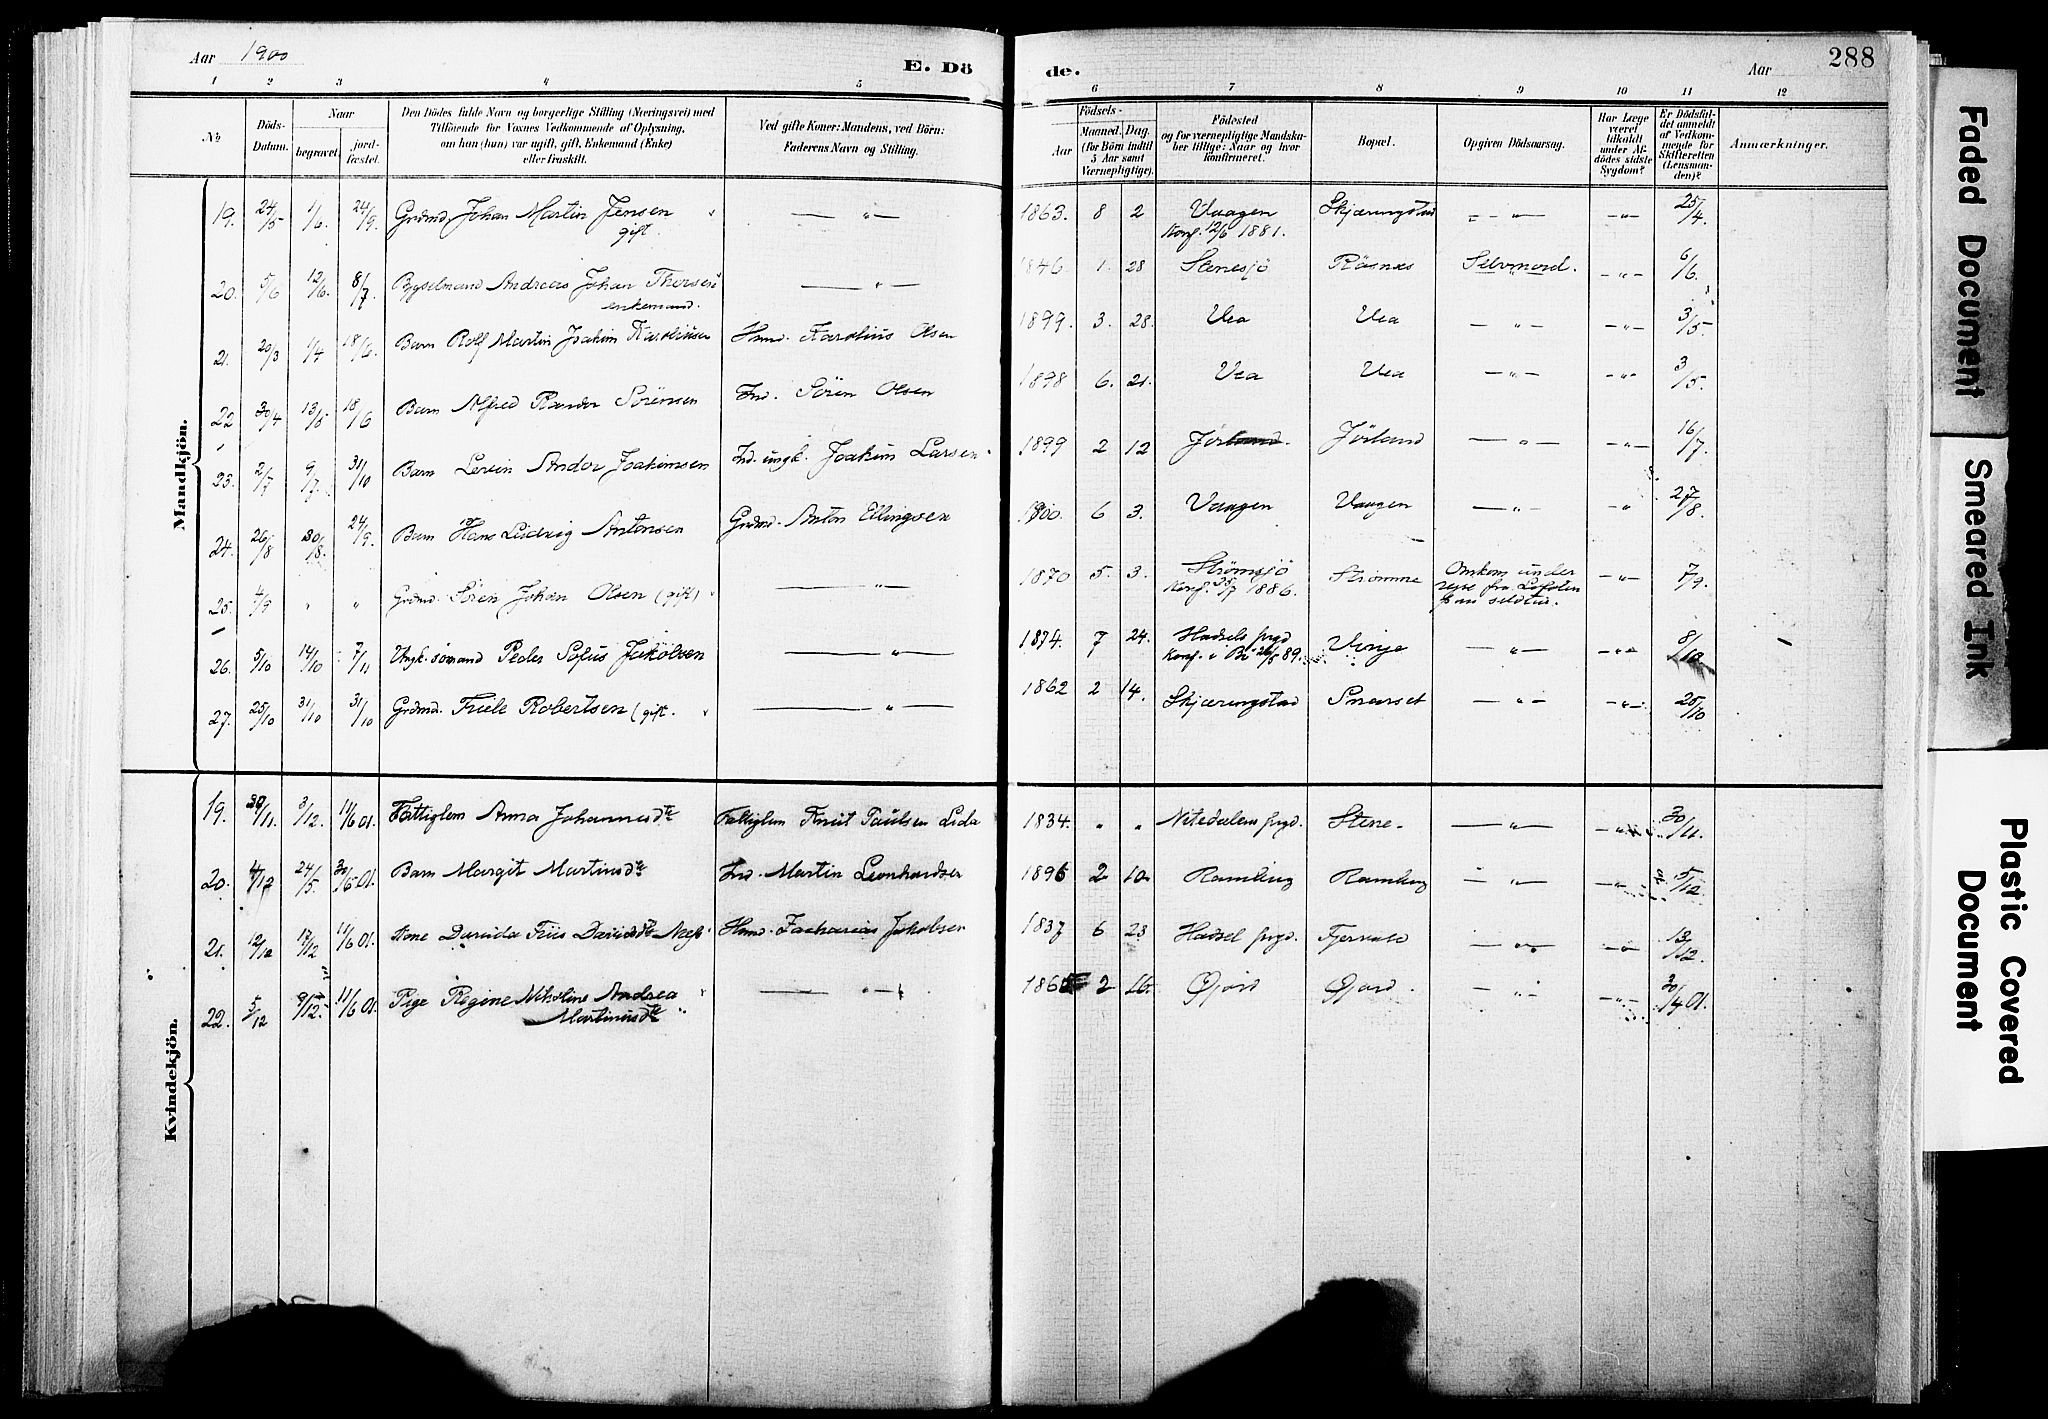 Aar 1900
E. Dö
de.
Aar
288
1 2 3 4 5
6 7 8 9 10 11 12
№
Döds-Datum.
Naar
begravet.
jord-fæstet.
Den Dödes fulde Navn og borgerlige Stilling (Næringsvei) med
Tilföiende for Voxnes Vedkommende af Oplysning,
om han (hun) var ugift, gift, Enkemand (Enke)
eller fraskilt.
Ved gifte Koner: Mandens, ved Börn:
Faderens Navn og Stilling.
Födsels-
Aar
Maaned. Dag.
(for Börn indtil
5 Aar samt
Værnepligtige).
Födested
og for værnepligtige Mandska-
ber tillige: Naar og hvor
konfirmeret.
Bopæl.
Opgiven Dödsaarsag.
Har Læge
været
tilkaldt
under Af-
dödes sidste
Sygdom?
Er Dödsfal-
det anmeldt
af Vedkom-
mende for
Skifteretten
(Lensman-
den)?
Anmærkninger.
Mandkjön.
19. 24/5 1/6 24/9. Grdmd. Johan Martin Jensen — " — 1863. 8 2 Vaagen Skjæringstad — " — — " — 25/4.
gift. Konf. 12/6 1881.
20. 5/6 12/6. 8/7. Bygselmand Andreas Johan Thorsen — " — 1846. 1. 28 Stenesjö Räsnes Selvmord. — " — 6/6.
enkemand.
21. 20/3 1/4 18/6. Barn Rolf Martin Joakim Karoliusen Hmd. Karolius Olsen 1899. 3. 28. Vea Vea — " — — " — 3/5.
22 30/4 13/5 18/6 Barn Alfred Rander Sörensen Ind. Sören Olsen 1898 6. 21. Vea Vea — " — — " — 3/5.
23. 2/7 9/7. 31/10 Barn Levin Andor Joakimsen Ind. ungk. Joakim Larsen 1899 2 12 Jörland. Jörland — " — — " — 16/7.
24. 26/8 30/8. 24/9. Barn Hans Ludvig Antonsen Grdmd. Anton Ellingsen 1900. 6 3. Vaagen Vaagen — " — — " 27/8.
25. 4/9 " " Grdmd. Sören Johan Olsen (gift) — " — 1870 5. 3. Strömsjö Strömme Omkom under — " — 7/9.
Konf. 25/7 1886. reise fra Lofoten
paa sildtur.
26. 5/10 14/10 7/11 Ungk. sömand Peder Sofus Jakobsen — " — 1874. 7 24. Hadsels prgd Vinje — " — — " — 8/10
Konf. i Bö 26/5 89.
27. 25/10 31/10 31/10 Grdmd. Friele Robertsen (gift. — " — 1862 2 14. Skjæringstad Smærset — " — — " — 25/10
Kvindekjön.
19. 30/11. 3/12. 11/6 01. Fattiglem Anna Johannesdtr Fattiglem Knut Paulsen Lida 1834. " " Nitedalens prgd. Stene. — " — — " — 30/11.
20. 4/12 24/5. 30/6 01. Barn Margit Martinsdtr Ind. Martin Leonhardsen 1896 2 10. Ramberg Ramberg — " — — " — 5/12.
21. 12/12 17/12 11/6 01. Kone Dareida Friis Davidsdtr Næss Hmd. Zacharias Jakobsen 1837 6 23 Hadsel prgd. Fjærvold — " — — " — 13/12.
22. 5/12 9/12. 11/6 01. Pige Regine Nikoline Andrea — " — 2 16. Gjörd Gjörd. — " — — " — 30/4 01.
Martinusdtr
Faded Document
Smeared Ink
Plastic Covered
Document